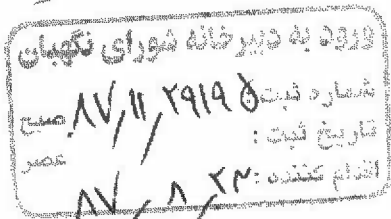 ورود به دبیرخانه شورای نگهبان
شماره ثبت: ۸۷/۱۱/۲۹۱۹۵ صبح
تاریخ ثبت: عصر
اقدام کننده: ۸۷/۸/۲۳